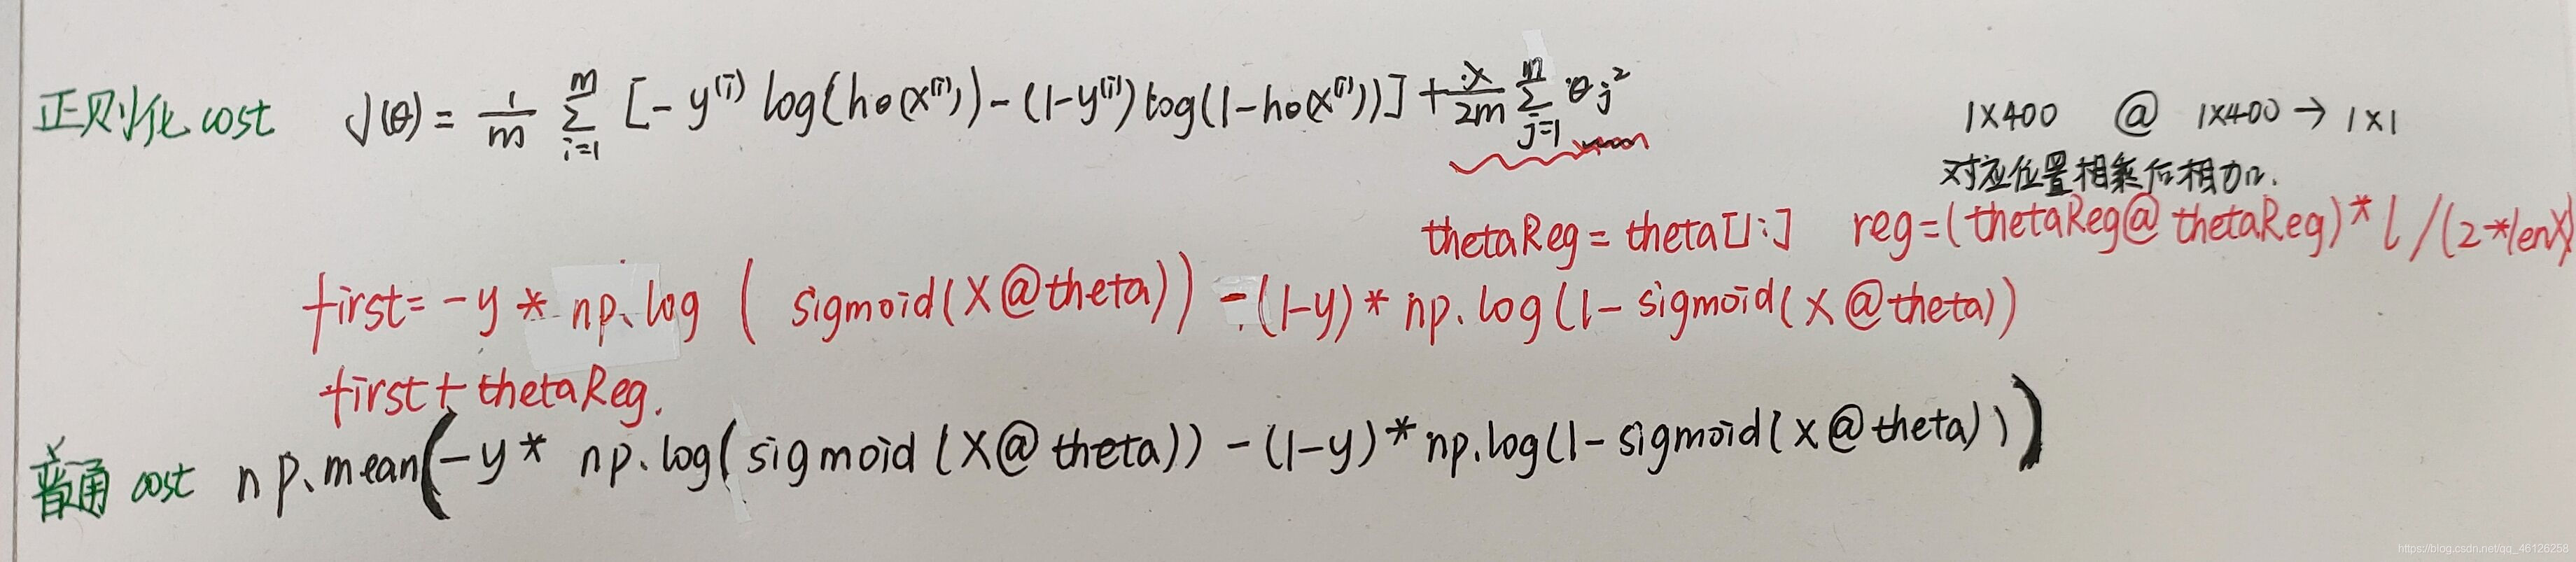 正则化 cost J(θ) = 1/m Σ_{i=1}^{m} [-y^{(i)} log(hθ(x^{(i)})) - (1-y^{(i)}) log(1-hθ(x^{(i)}))] + λ/2m Σ_{j=1}^{n} θj²
1X400 @ 1X400 → 1X1
对应位置相乘后相加.
thetaReg = theta[1:] reg=(thetaReg@thetaReg)*l/(2*lenX)
first= -y * np.log ( sigmoid(X@theta)) - (1-y)* np.log(1-sigmoid(X@theta))
first+thetaReg.
普通 cost np.mean(-y* np.log(sigmoid(X@theta)) - (1-y)*np.log(1-sigmoid(X@theta)))
https://blog.csdn.net/qq_46126258